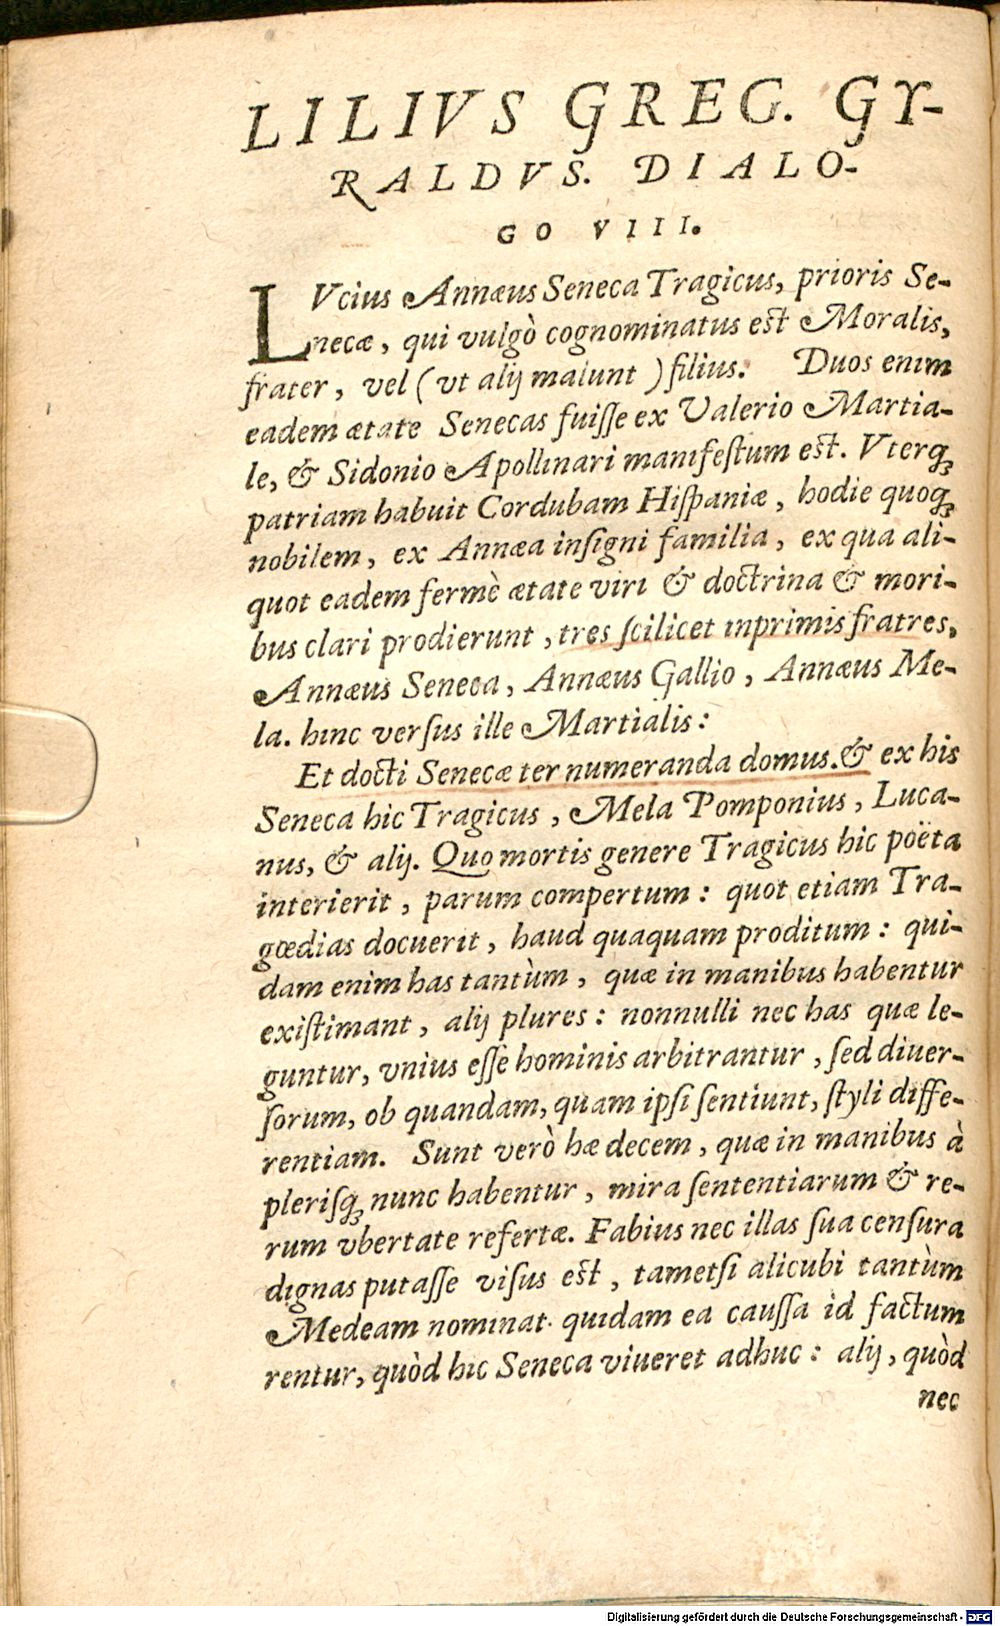 LILIVS GREG. GY-
RALDVS. DIALO-
GO VIII.
LVcius Annæus Seneca Tragicus, prioris Se-
necæ, qui vulgò cognominatus est Moralis,
frater, vel (vt alij malunt) filius. Duos enim
eadem ætate Senecas fuiſſe ex Valerio Martia-
le, & Sidonio Apollinari manifeſtum est. Vterq;
patriam habuit Cordubam Hiſpaniæ, hodie quoq;
nobilem, ex Annæa inſigni familia, ex qua ali-
quot eadem fermè ætate viri & doctrina & mori-
bus clari prodierunt, tres ſcilicet inprimis fratres,
Annæus Seneca, Annæus Gallio, Annæus Me-
la. hinc verſus ille Martialis:
Et docti Senecæ ter numeranda domus. & ex his
Seneca hic Tragicus, Mela Pomponius, Luca-
nus, & alij. Quo mortis genere Tragicus hic poëta
interierit, parum compertum: quot etiam Tra-
gœdias docuerit, haud quaquam proditum: qui-
dam enim has tantùm, quæ in manibus habentur
exiſtimant, alij plures: nonnulli nec has quæ le-
guntur, vnius eſſe hominis arbitrantur, ſed diuer-
ſorum, ob quandam, quam ipſi ſentiunt, ſtyli diffe-
rentiam. Sunt verò hæ decem, quæ in manibus à
pleriſq; nunc habentur, mira ſententiarum & re-
rum vbertate refertæ. Fabius nec illas ſua cenſura
dignas putaſſe viſus est, tametſi alicubi tantùm
Medeam nominat. quidam ea cauſſa id factum
rentur, quòd hic Seneca viueret adhuc: alij, quòd
nec
Digitalisierung gefördert durch die Deutsche Forschungsgemeinschaft - DFG